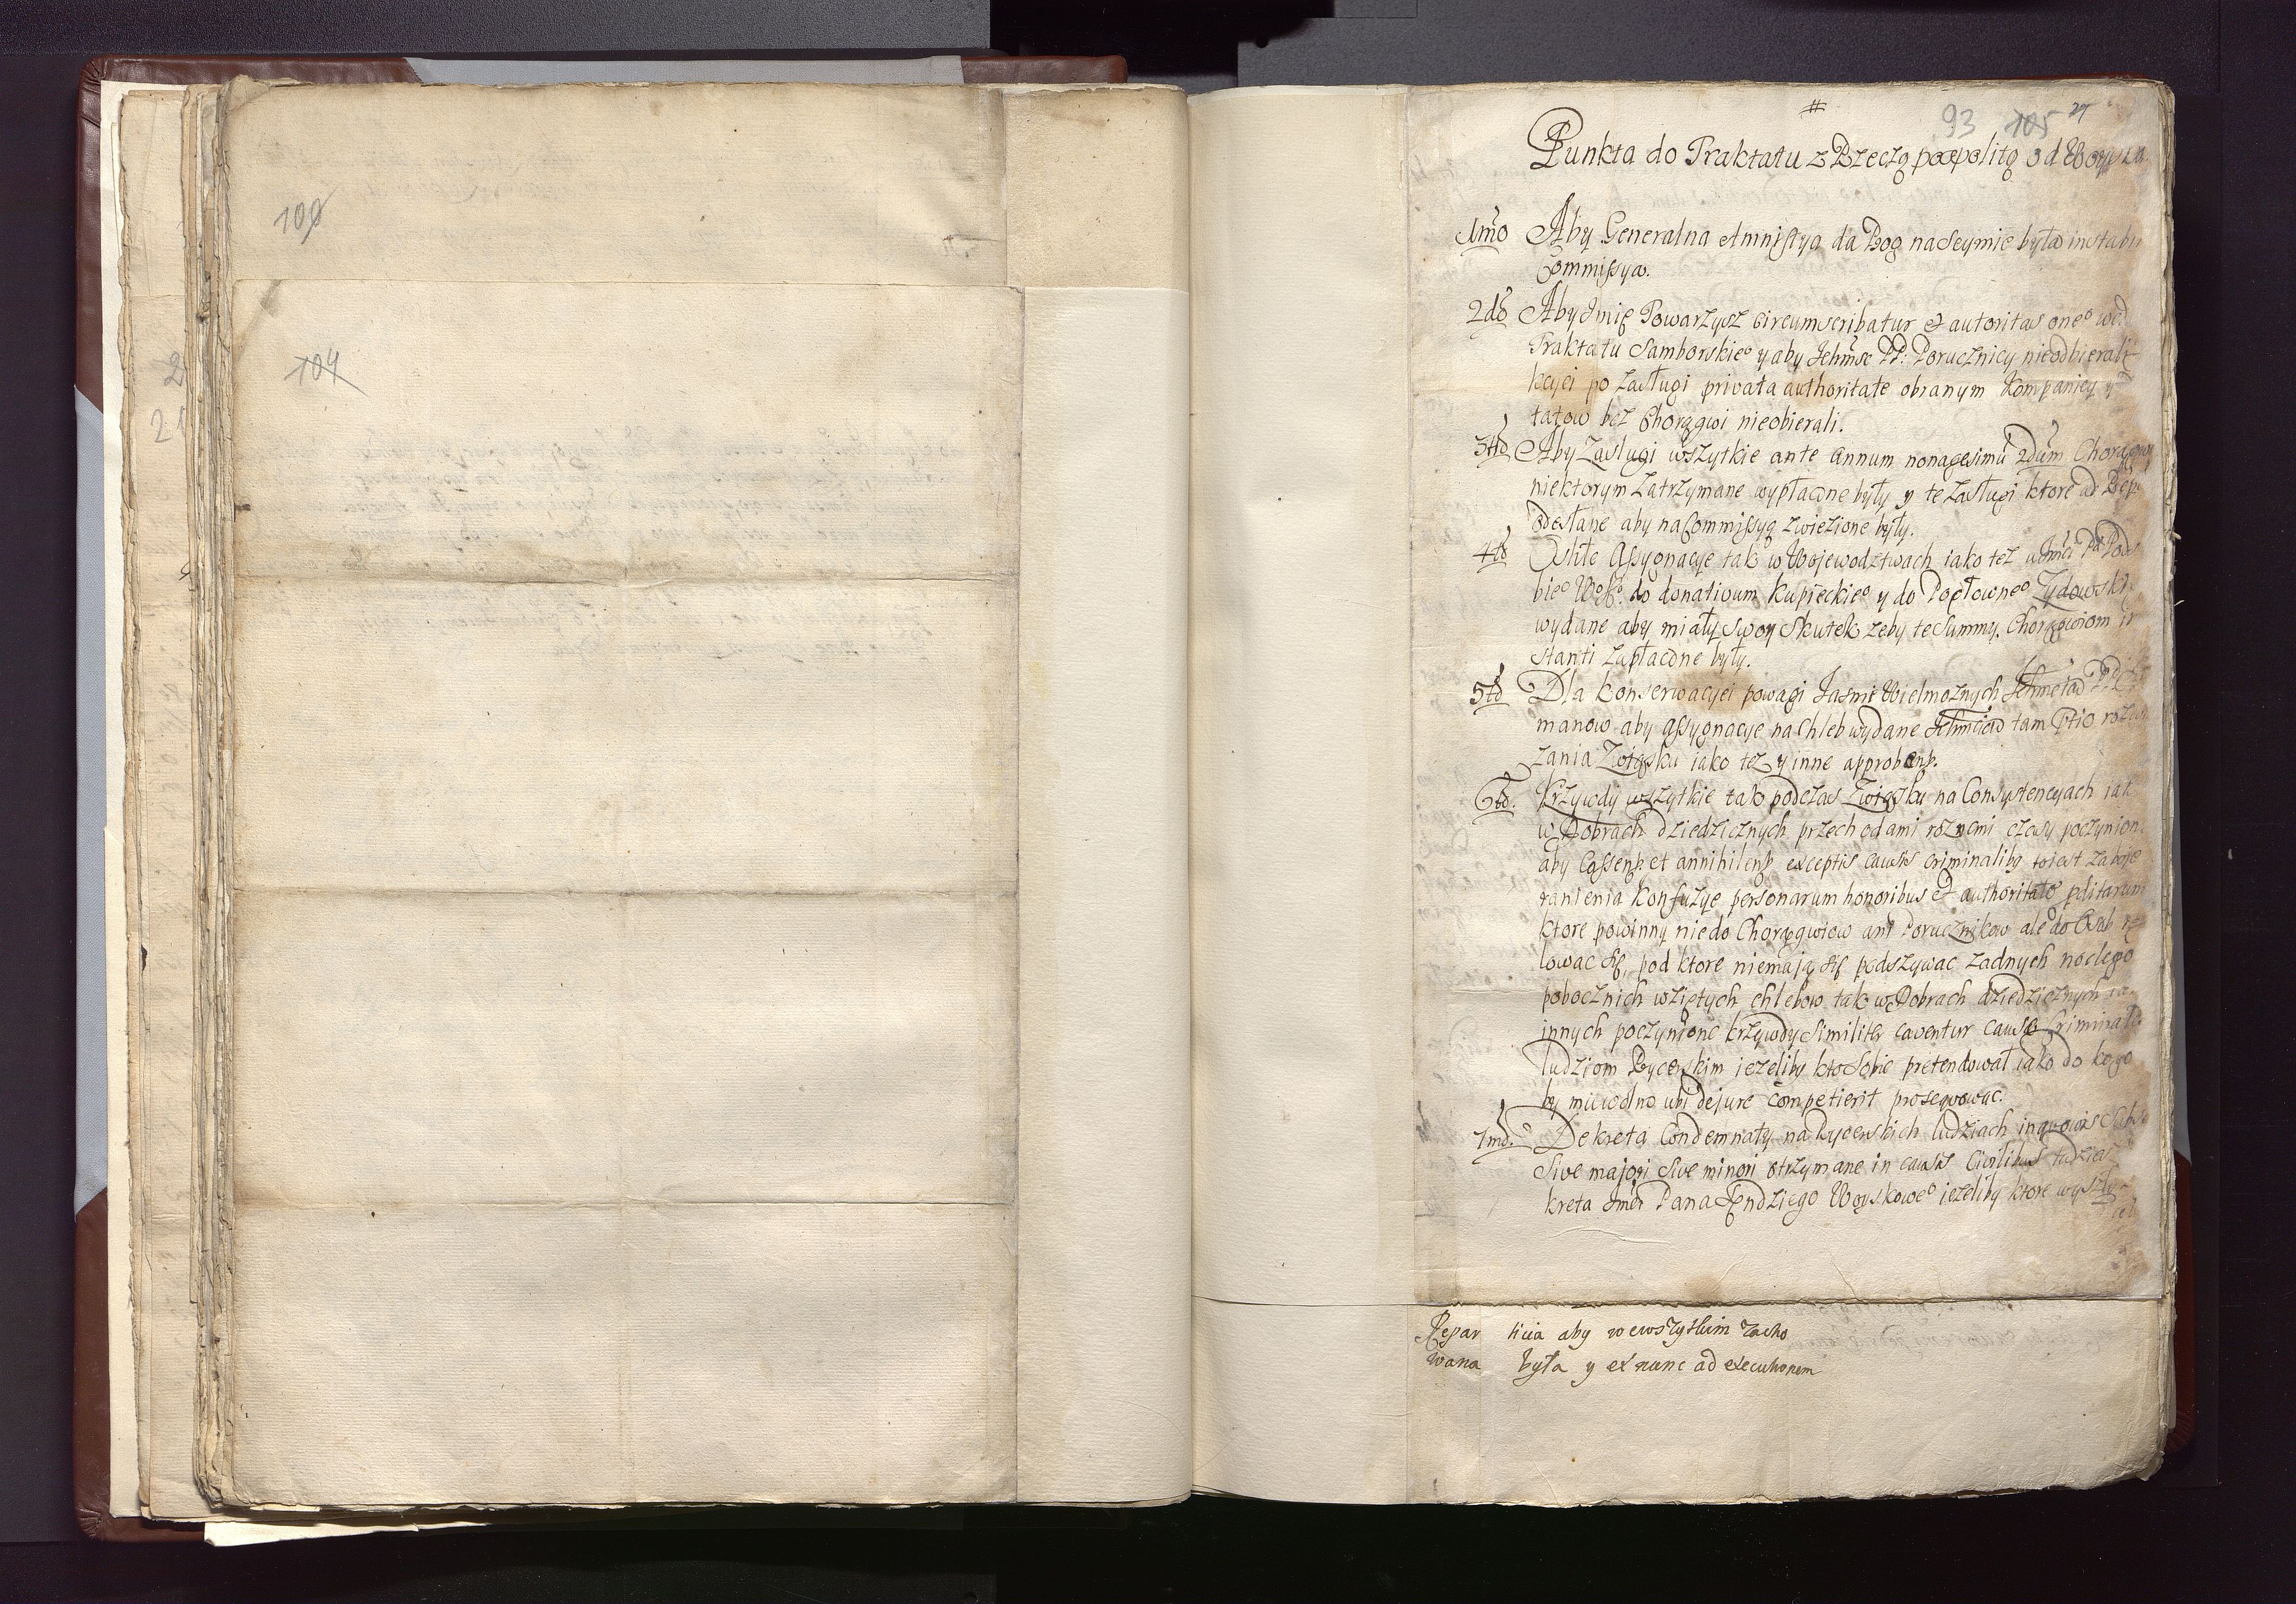 100
104
2
21
#
93 105 27
Punkta do Traktatu z Rzecząpospolitą od Woyska
1mo Aby Generalna Amnistya da Bog na Seymie była in
Commissya.
2do Aby Imię Towarzysz circumscribatur et autoritas oneo
Traktatu Samborskieo y aby Ichmsc PP: Porucznicy nieodbierali
po zasługi privata authoritate obranym Kompaniey y
tatow bez Chorągwi nieobierali.
3tio Aby Zasługi wszytkie ante Annum nonagesimū 2dum Chorągwi
niektorym zatrzymane wypłacone były y te zasługi ktore ad
odesłane aby na Commissyą zwiezione były.
4to Assygnacye tak w Wojewodztwach iako tez u Imci Pa
bieo do donativum Kupieckieo y do Pogłowneo Zydowskie
wydane aby miały swoy skutek zeby te Summy Chorągwiom in
stanti zapłacone były.
5to Dla konserwacyei powagi Jasnie Wielmoznych Ichmciow PP
manow aby Assygnacye na Chleb wydane Ichmciow tam
zania Związku iako tez y inne approbent.
6to. Krzywdy wszytkie tak podczas Związku na Consystencyach iak
w Dobrach dziedzicznych przechodami roznemi czasy poczynione
aby Cassent. et annihilent. exceptis causis criminalibg toiest zaboje
ranienia Konfuzye personarum honoribus et authoritate pditarum
ktore powinny niedo Chorągwiow ani Porucznikow ale do Osob
lowac się, pod ktore niemaią się podszywac zadnych noclego
pobocznich wziętych chlebow tak w Dobrach dziedzicznych ia
innych poczynione krzywdy Similiter caventur causae Criminal
ludziom Rycerskim iezeliby kto Sobie pretendował iako do kogo
by miewolno ubi dejure competierit prosequowac.
7mo. Dekreta Condemnaty na Rycerskich ludziach inquovis Subse
Sive majori Sive minori otrzymane in causis Civilibus tudziesz
kreta Imci Pana Sędziego Woyskoweo iezeliby ktore wyszły
Repar ticia aby wewszytkim zacho
wana była y ex nunc ad executionem